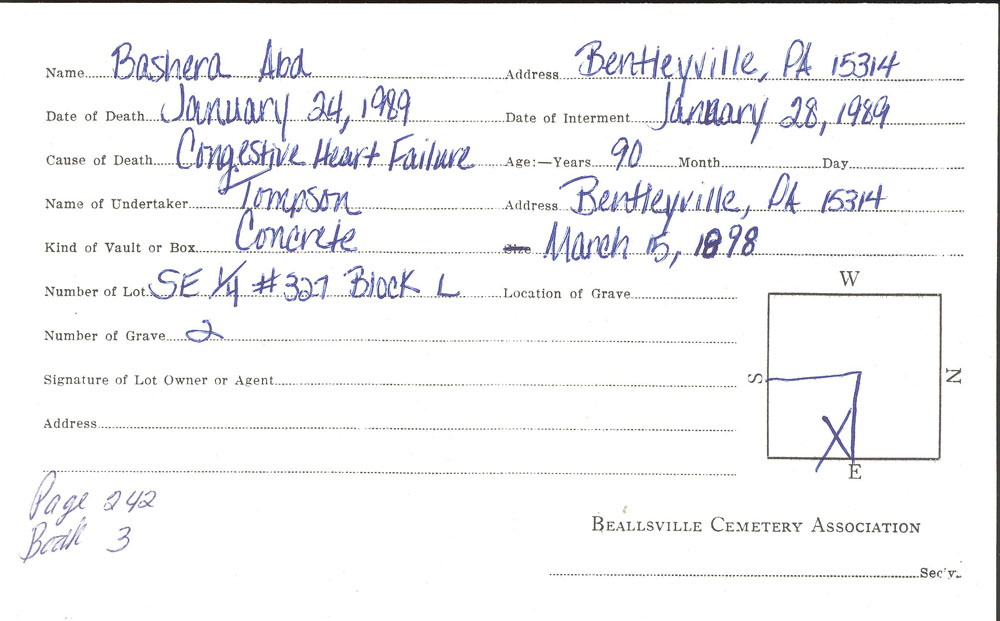 Name Bashera Abd Address Bentleyville, PA 15314
Date of Death January 24, 1989 Date of Interment January 28, 1989
Cause of Death Congestive Heart Failure Age:—Years 90 Month Day
Name of Undertaker Tompson Address Bentleyville, PA 15314
Kind of Vault or Box Concrete Size March 15, 1898
Number of Lot SE 1/4 #327 Block L Location of Grave
W
Number of Grave 2
Signature of Lot Owner or Agent
S N
Address
X
E
Page 242
Book 3
Beallsville Cemetery Association
Sec'y.